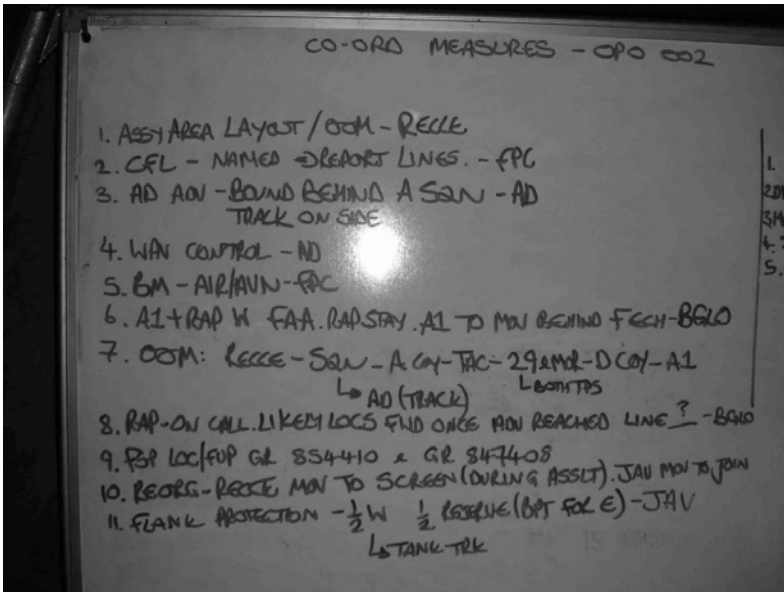 CO-ORD MEASURES - OPO 002
1. ASSY AREA LAYOUT / OOM - RECCE
2. CFL - NAMED → REPORT LINES. - FPC
3. AD MOV - BOUND BEHIND A SQN - AD
TRACK ON SIDE
4. WPN CONTROL - AD
5. BM - AIR/AVN - FPC
6. A1 + RAP W FAA. RAP STAY. A1 TO MOV BEHIND F ECH - BGLO
7. OOM: RECCE - SQN - A COY - TAC - 29 & MOR - D COY - A1
↳ AD (TRACK) ↳ BOTH TPS
8. RAP - ON CALL. LIKELY LOCS FWD ONCE MOV REACHED LINE ? - BGLO
9. FSP LOC/FUP GR 854410 & GR 847408
10. REORG - RECCE MOV TO SCREEN (DURING ASSLT). JAV MOV TO JOIN
11. FLANK PROTECTION - ½ W ½ RESERVE (BPT FOR E) - JAV
↳ TANK TRK
1.
2.
3.
4.
5.